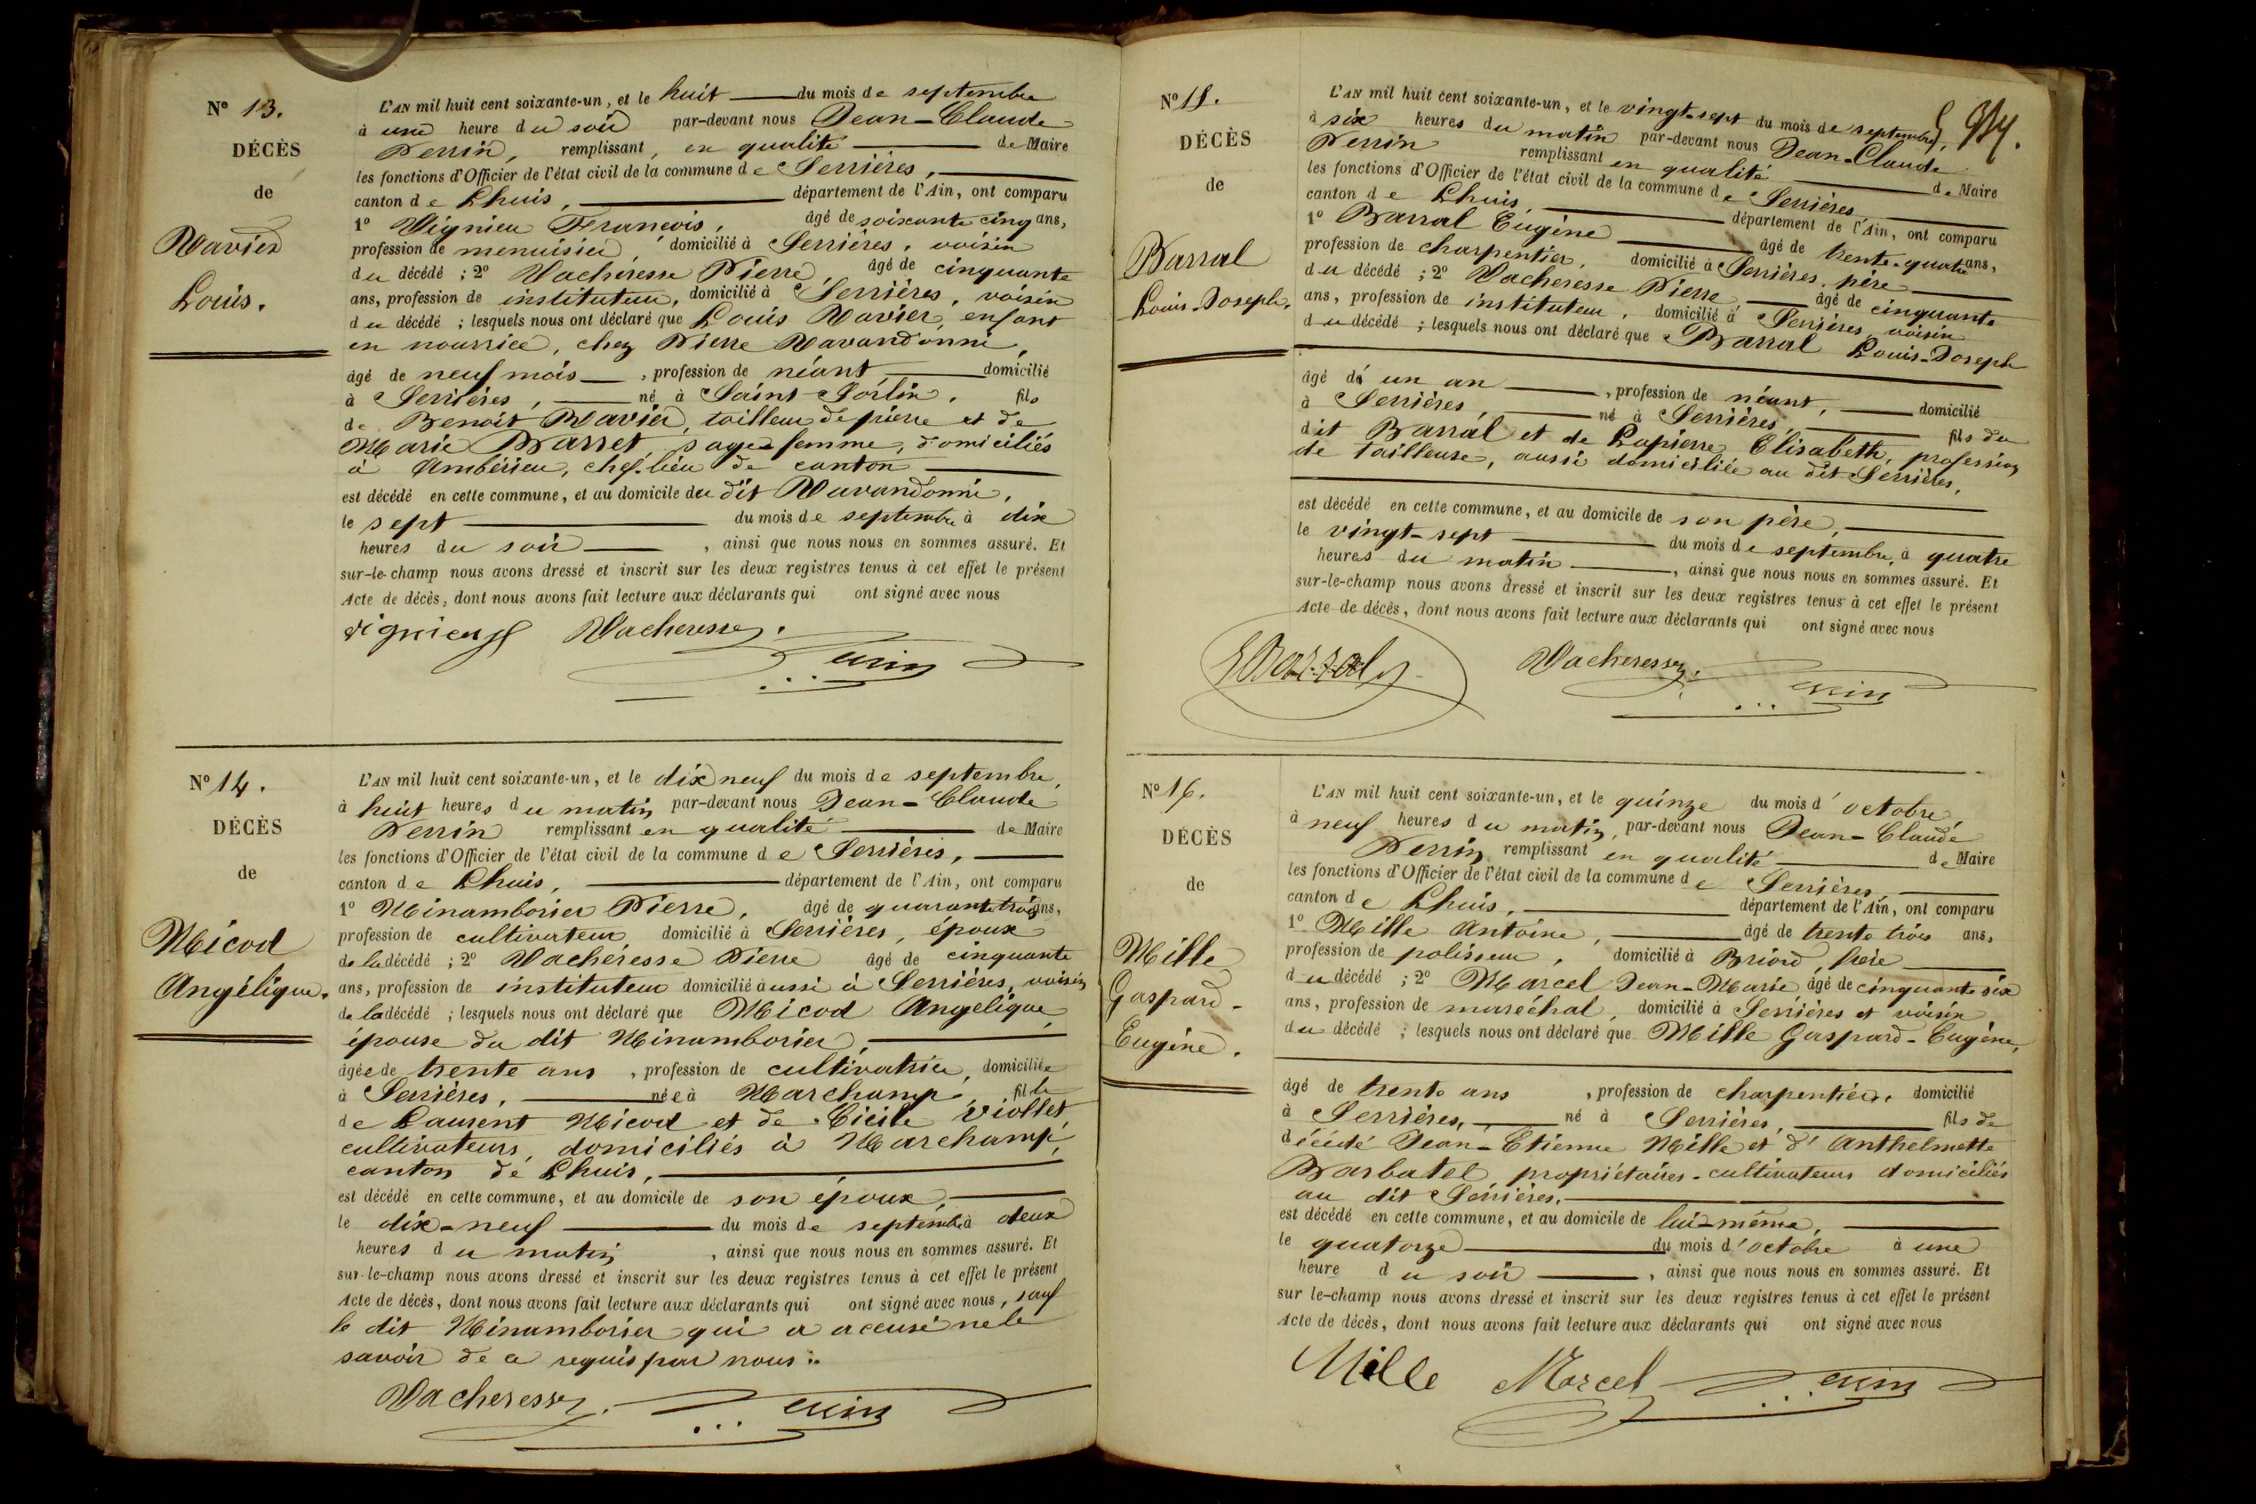 N° 13.
DÉCÈS
de
Ravier
Louis.
L'AN mil huit cent soixante-un, et le huit du mois de septembre
à une heure du soir par-devant nous Jean-Claude
Perrin, remplissant, en qualité de Maire
les fonctions d'Officier de l'état civil de la commune de Serrières,
canton de Lhuis, département de l'Ain, ont comparu
1° Vignieu François, âgé de soixante cinq ans,
profession de menuisier, domicilié à Serrières, voisin
du décédé ; 2° Vacheresse Pierre, âgé de cinquante
ans, profession de instituteur, domicilié à Serrières, voisin
du décédé ; lesquels nous ont déclaré que Louis Ravier, enfant
en nourrice, chez Pierre Ravandonni,
âgé de neuf mois, profession de néant domicilié
à Serrières, né à Saint-Sorlin, fils
de Benoit Ravier, tailleur de pierre et de
Marie Barret, sage-femme, domiciliés
à Ambérieu, chef-lieu de canton
est décédé en cette commune, et au domicile du dit Ravandonni,
le sept du mois de septembre à dix
heures du soir, ainsi que nous nous en sommes assuré. Et
sur-le-champ nous avons dressé et inscrit sur les deux registres tenus à cet effet le présent
Acte de décès, dont nous avons fait lecture aux déclarants qui ont signé avec nous
Vacheresse. Perrin
N° 14.
DÉCÈS
de
Micod
Angélique.
L'AN mil huit cent soixante-un, et le dix neuf du mois de septembre,
à huit heures du matin par-devant nous Jean-Claude
Perrin remplissant en qualité de Maire
les fonctions d'Officier de l'état civil de la commune de Serrières,
canton de Lhuis, département de l'Ain, ont comparu
1° Minamborier Pierre, âgé de quarante trois ans,
profession de cultivateur domicilié à Serrières, époux
de la décédé ; 2° Vacheresse Pierre âgé de cinquante
ans, profession de instituteur domicilié aussi à Serrières, voisin
de la décédé ; lesquels nous ont déclaré que Micod Angélique,
épouse du dit Minamborier,
âgée de trente ans, profession de cultivatrice, domiciliée
à Serrières, née à Marchamp, fille
de Laurent Micod et de Cécile Viollet,
cultivateurs, domiciliés à Marchamp,
canton de Lhuis,
est décédé en cette commune, et au domicile de son époux,
le dix-neuf du mois de septembre à deux
heures du matin, ainsi que nous nous en sommes assuré. Et
sur-le-champ nous avons dressé et inscrit sur les deux registres tenus à cet effet le présent
Acte de décès, dont nous avons fait lecture aux déclarants qui ont signé avec nous, sauf
le dit Minamborier qui a accusé ne le
savoir de ce requis par nous.
Vacheresse. Perrin
N° 15.
DÉCÈS
de
Barral
Louis-Joseph.
L'AN mil huit cent soixante-un, et le vingt-sept du mois de septembre,
à six heures du matin par-devant nous Jean-Claude
Perrin remplissant en qualité de Maire
les fonctions d'Officier de l'état civil de la commune de Serrières
canton de Lhuis, département de l'Ain, ont comparu
1° Barral Eugène âgé de trente-quatre ans,
profession de charpentier, domicilié à Serrières, père
du décédé ; 2° Vacheresse Pierre, âgé de cinquante
ans, profession de instituteur, domicilié à Serrières voisin
du décédé ; lesquels nous ont déclaré que Barral Louis-Joseph
âgé de un an, profession de néant, domicilié
à Serrières, né à Serrières, fils du
dit Barral et de Lapierre Elisabeth, profession
de tailleuse, aussi domiciliée au dit Serrières,
est décédé en cette commune, et au domicile de son père,
le vingt-sept du mois de septembre, à quatre
heures du matin, ainsi que nous nous en sommes assuré. Et
sur-le-champ nous avons dressé et inscrit sur les deux registres tenus à cet effet le présent
Acte de décès, dont nous avons fait lecture aux déclarants qui ont signé avec nous
Barral Vacheresse. Perrin
N° 16.
DÉCÈS
de
Mille
Gaspard-
Eugène.
L'AN mil huit cent soixante-un, et le quinze du mois d'octobre,
à neuf heures du matin, par-devant nous Jean-Claude
Perrin remplissant en qualité de Maire
les fonctions d'Officier de l'état civil de la commune de Serrières,
canton de Lhuis, département de l'Ain, ont comparu
1° Mille Antoine, âgé de trente trois ans,
profession de polisseur, domicilié à Briord, frère
du décédé ; 2° Marcel Jean-Marie, âgé de cinquante six
ans, profession de maréchal, domicilié à Serrières et voisin
du décédé ; lesquels nous ont déclaré que Mille Gaspard-Eugène,
âgé de trente ans, profession de charpentier, domicilié
à Serrières, né à Serrières, fils de
décédé Jean-Etienne Mille et d'Anthelmette
Barbatel, propriétaires-cultivateurs domiciliés
au dit Serrières,
est décédé en cette commune, et au domicile de lui-même,
le quatorze du mois d'octobre à une
heure du soir, ainsi que nous nous en sommes assuré. Et
sur le-champ nous avons dressé et inscrit sur les deux registres tenus à cet effet le présent
Acte de décès, dont nous avons fait lecture aux déclarants qui ont signé avec nous
Mille Marcel Perrin